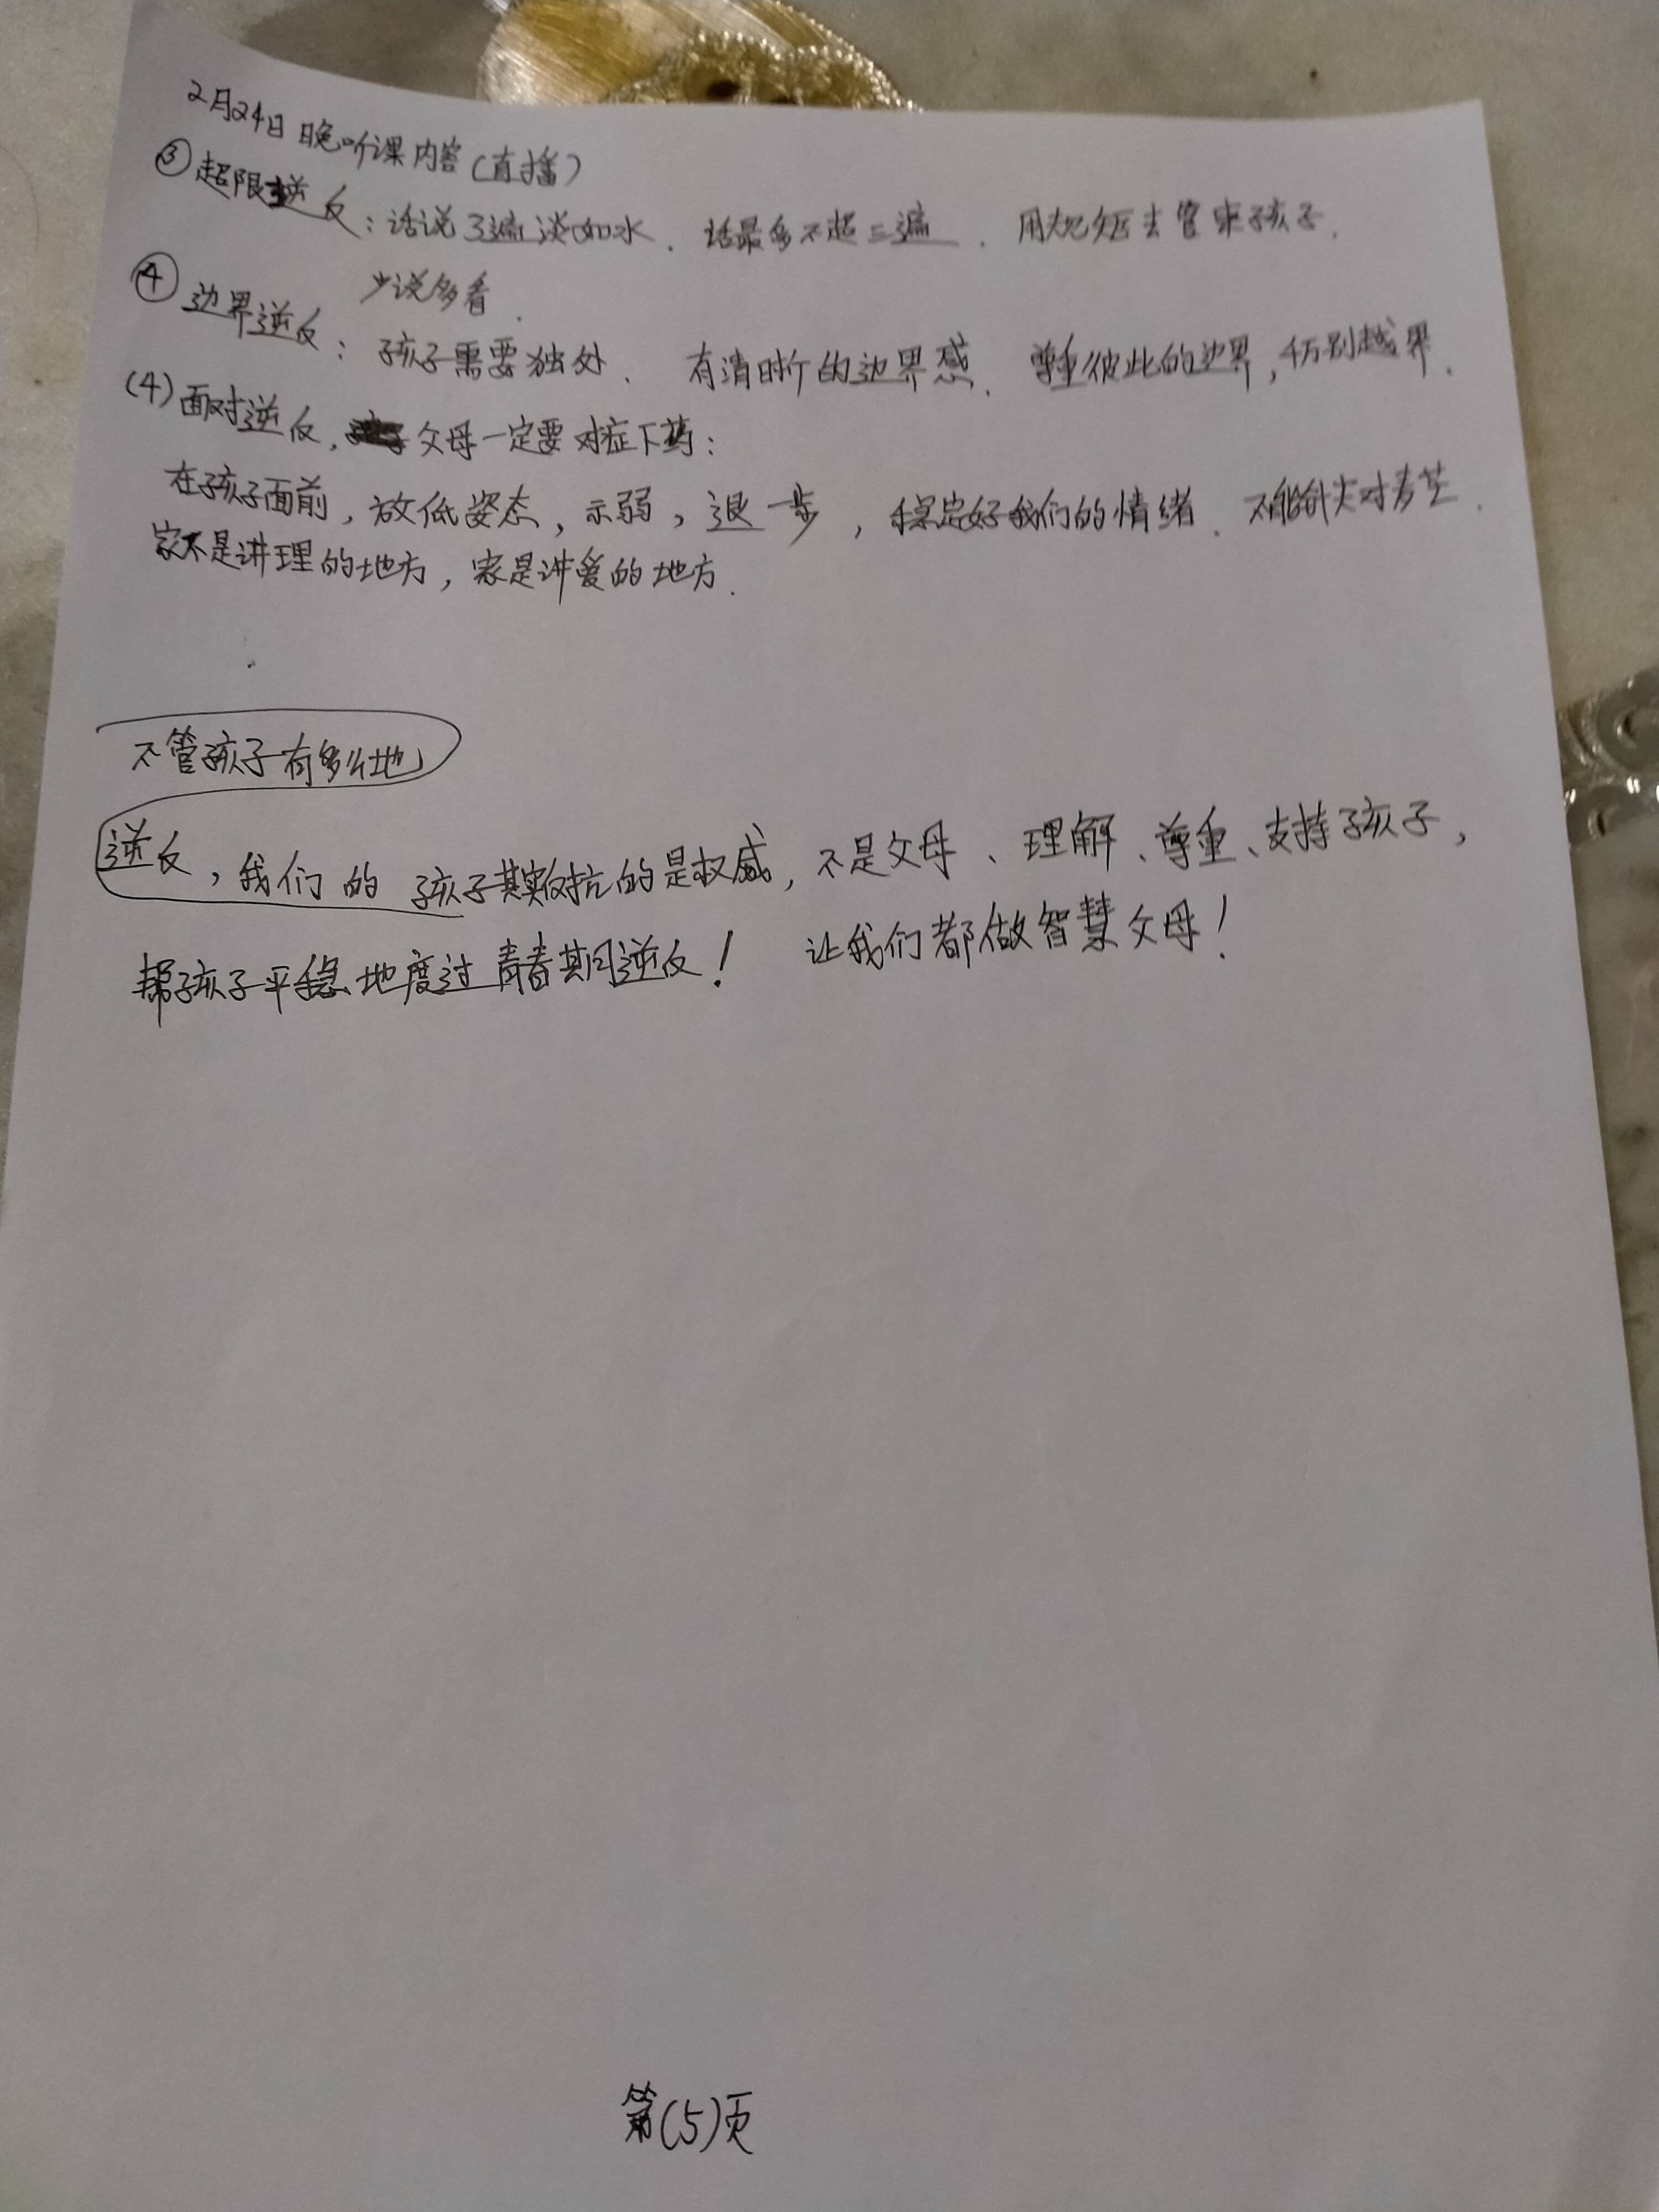 2月24日晚听课内容(直播)
③超限逆反:话说3遍淡如水.话最多不超三遍.用规矩去管束孩子.
少说多看.
④边界逆反:孩子需要独处.有清晰的边界感.尊重彼此的边界,千万别越界.
(4)面对逆反,父母一定要对症下药:
在孩子面前,放低姿态,示弱,退一步,稳定好我们的情绪.不能针尖对麦芒.
家不是讲理的地方,家是讲爱的地方.
不管孩子有多么地
逆反,我们的孩子其实对抗的是权威,不是父母、理解、尊重、支持孩子,
帮孩子平稳地度过青春期逆反!让我们都做智慧父母!
第(5)页